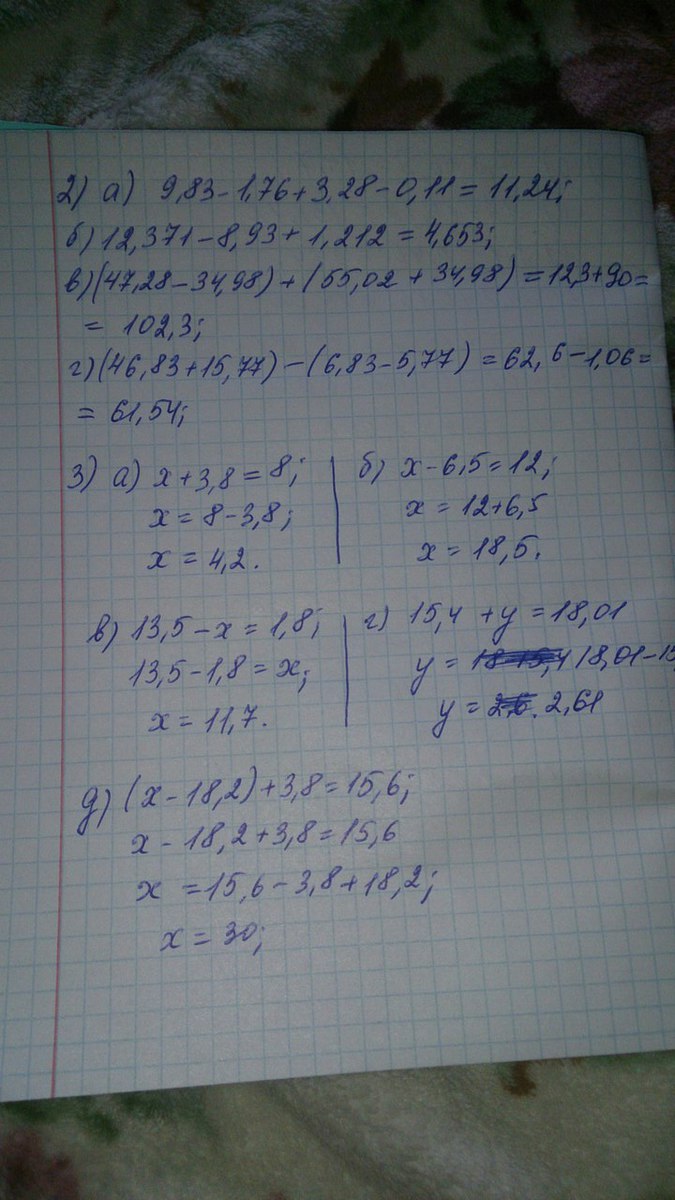 2) а) 9,83-1,76+3,28-0,11=11,24;
б) 12,371-8,93+1,212=4,653;
в) (47,28-34,98)+(55,02+34,98)=12,3+90=
= 102,3;
г) (46,83+15,77)-(6,83-5,77)=62,6-1,06=
= 61,54;
3) а) x+3,8=8;
x=8-3,8;
x=4,2.
б) x-6,5=12;
x=12+6,5
x=18,5.
в) 13,5-x=1,8;
13,5-1,8=x;
x=11,7.
г) 15,4+y=18,01
y= 18,01-15,
y= 2,61
д) (x-18,2)+3,8=15,6;
x-18,2+3,8=15,6
x=15,6-3,8+18,2;
x=30;